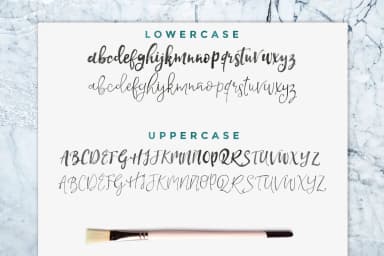 LOWERCASE
abcdefghijklmnopqrstuvwxyz
abcdefghijklmnopqrstuvwxyz
UPPERCASE
ABCDEFGHIJKLMNOPQRSTUVWXYZ
ABCDEFGHIJKLMNOPQRSTUVWXYZ